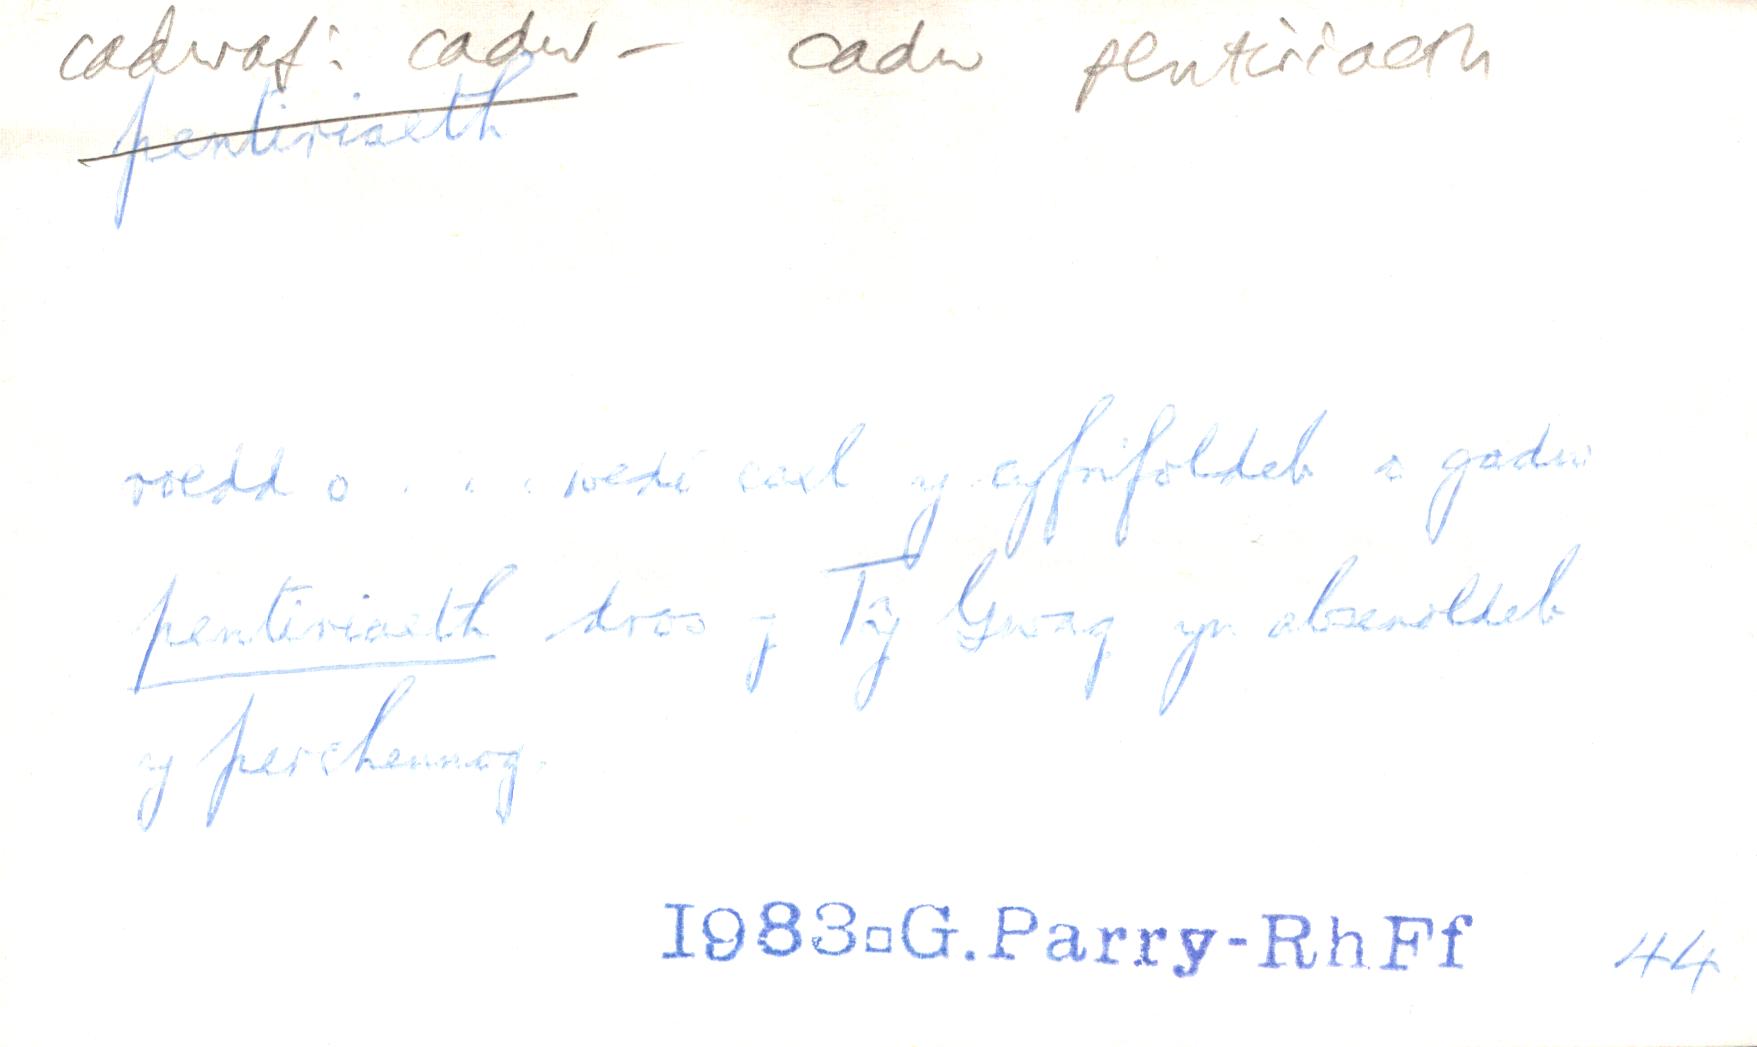 cadwaf: cadw – cadw pentiriaeth
pentiriaeth
roedd o . . . wedi cael y cyfrifoldeb o gadw
pentiriaeth dros y Tŷ Gwag yn absenoldeb
y perchennog.
1983□G.Parry-RhFf 44